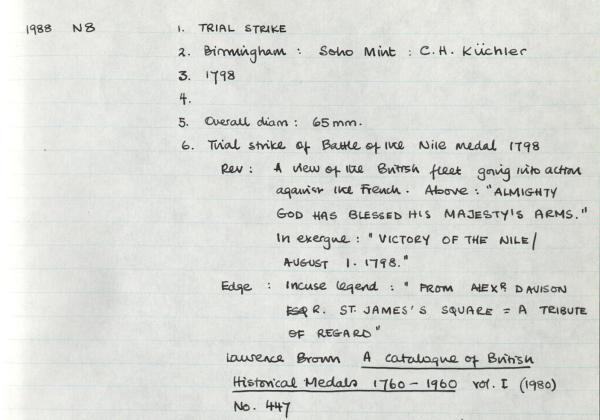 1988 N8 1. TRIAL STRIKE
2. Birmingham : Soho Mint : C.H. Küchler
3. 1798
4.
5. Overall diam : 65mm.
6. Trial strike of Battle of the Nile medal 1798
Rev : A view of the British fleet going into action
against the French. Above : "ALMIGHTY
GOD HAS BLESSED HIS MAJESTY'S ARMS."
In exergue : "VICTORY OF THE NILE/
AUGUST 1. 1798."
Edge : Incuse legend : "FROM ALEXR DAVISON
ESQR. ST. JAMES'S SQUARE = A TRIBUTE
OF REGARD"
Laurence Brown A Catalogue of British
Historical Medals 1760 - 1960 vol. I (1980)
No. 447